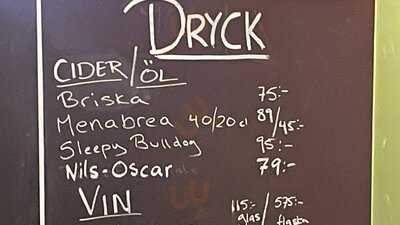 DRYCK
CIDER/ÖL
Briska 75:-
Menabrea 40/20cl 89/45:-
Sleepy Bulldog 95:-
Nils-Oscar 79:-
VIN 115:-/575:-
glas/flaska